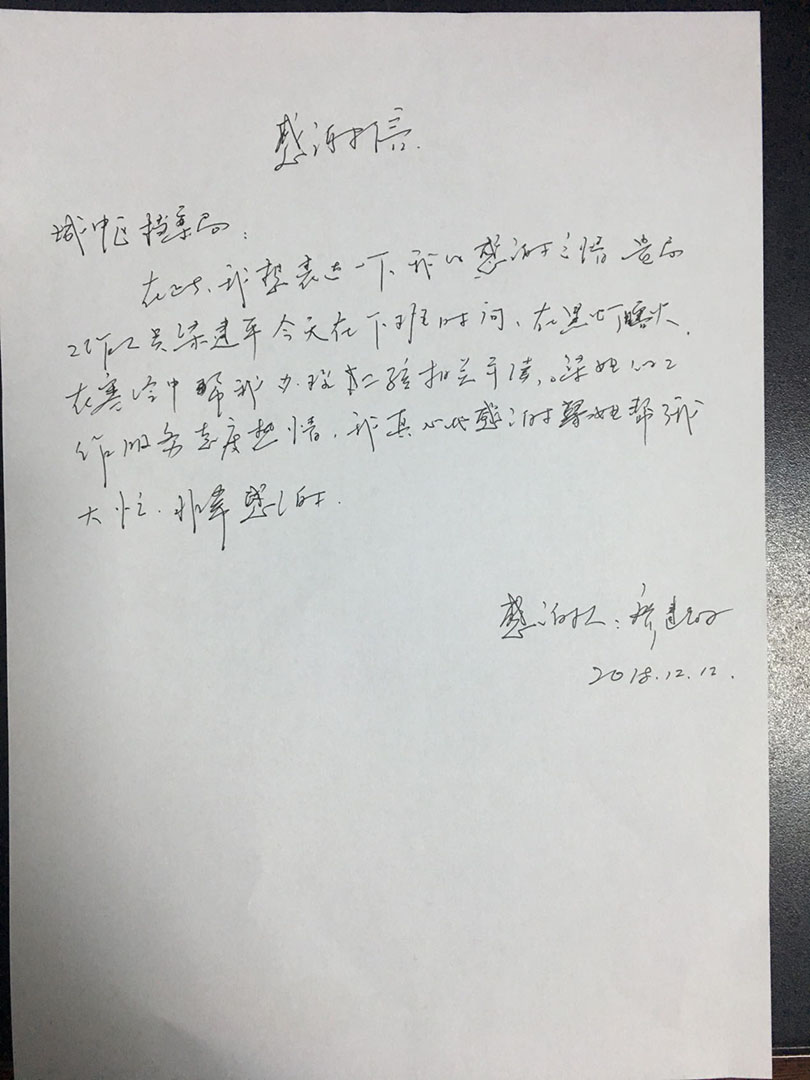 感谢信.
城中区档案局：
在此、我想表达一下、我的感谢之情 贵局
工作人员梁建平今天在下班时间、在黑灯瞎火、
在寒冷中帮我办理 相关手续。梁姐的工
作服务态度热情、我真心地感谢梁姐帮了我
大忙. 非常感谢.
感谢人：
2018.12.12.